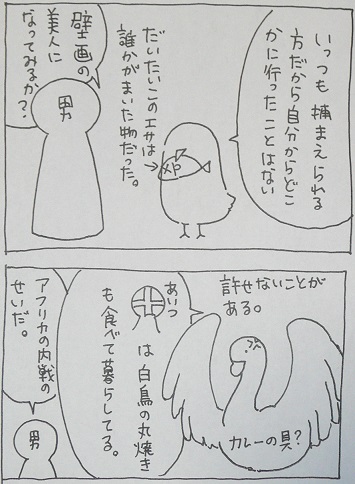 いっつも捕まえられる
方だから自分からどこ
かに行ったことはない
だいたいこのエサは→
誰かがまいた物だった。
壁画の
美人に
なってみるか?
男
許せないことが
ある。
カレーの具?
あいつ
は白鳥の丸焼き
も食べて暮らしてる。
アフリカの内戦の
せいだ。
男